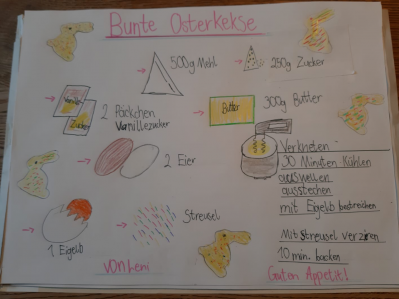 Bunte Osterkekse
500g Mehl
250g Zucker
Vanille
Zucker
2 Päckchen
Vanillezucker
Butter
300g Butter
2 Eier
Verkneten
30 Minuten Kühlen
auswellen
ausstechen
mit Eigelb bestreichen
1 Eigelb
Streusel
Mit Streusel verzieren
10 min. backen
von Leni
Guten Appetit!